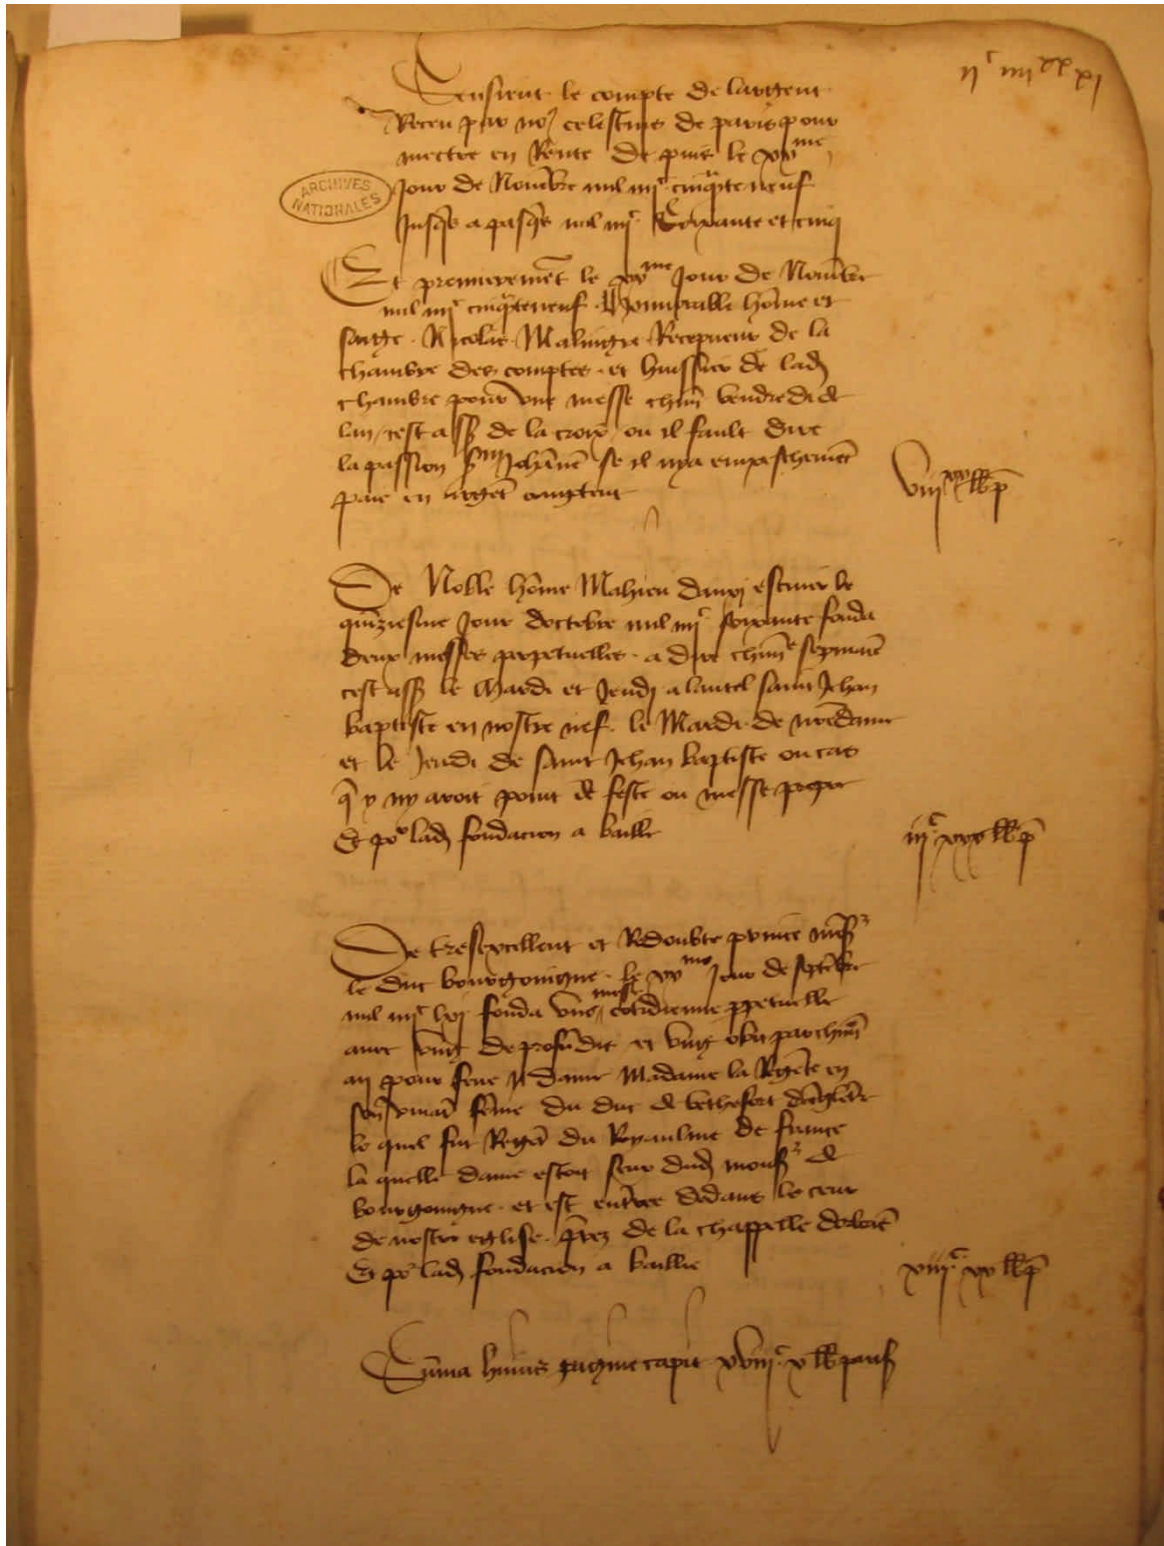 iiᶜ iiiiˣˣ xi
Sensieut le compte de largent
Receu par noˢ celestins de paris pour
mectre en Rente de puis le xvᵐᵉ
Jour de Novēbre mil iiiiᶜ cinqᵃte neuf
ARCHIVES NATIONALES
Jusqs a pasqs mil iiiiᶜ Soixante et cinq
Et premieremēt le xvᵐᵉ Jour de Novēbre
mil iiiiᶜ cinqᵃteneuf honnorable hōme et
saige Nicolas Malingre Recepveur de la
chambre des comptes et huissier de lad
chambre pour une messe chūn vendredi de
lan cest ass de la croix ou il fault dire
la passion Johānē se il nya empeschemēt
paie en argēt comptent
viiiˣˣ lb p
De Noble hōme Mahieu dauxi escuier le
quīziesme Jour doctobre mil iiiiᶜ soixante fonda
deux messes perpetuelles a dire chūnᵉ sepmaīe
cest ass le Mardi et Jeudi a lautel saint Jehan
baptiste en nostre nef le Mardi de nrēdame
et le Jeudi de saint Jehan baptiste ou cas
q̄ y ny aroit point de feste ou messe propre
Et poʳ lad fondacion a baillé
iiiᶜ xxx lb p
De tresexcellent et Redoubte prince mōsʳ
le duc bourgoingne le xvᵐᵉ Jour de septēbre
mil iiiiᶜ lxi fonda une messe cotidienne ppetuelle
avec ung de profūdis et ung obit par chūn
an pour feue dame Madame la Regēte en
son vivāt fēme du duc de bethefort dēgleterre
le quel fut Regēt du Royaulme de france
la quelle dame estoit seur dud monsʳ de
bourgoingne et est enterree dedans le ceur
de nostre eglise prez de la chappelle dorleās
Et poʳ lad fondacion a baillie
xiiiᶜ xx lb p
Sūma huius pagine capit xviiiᶜ x lb paris